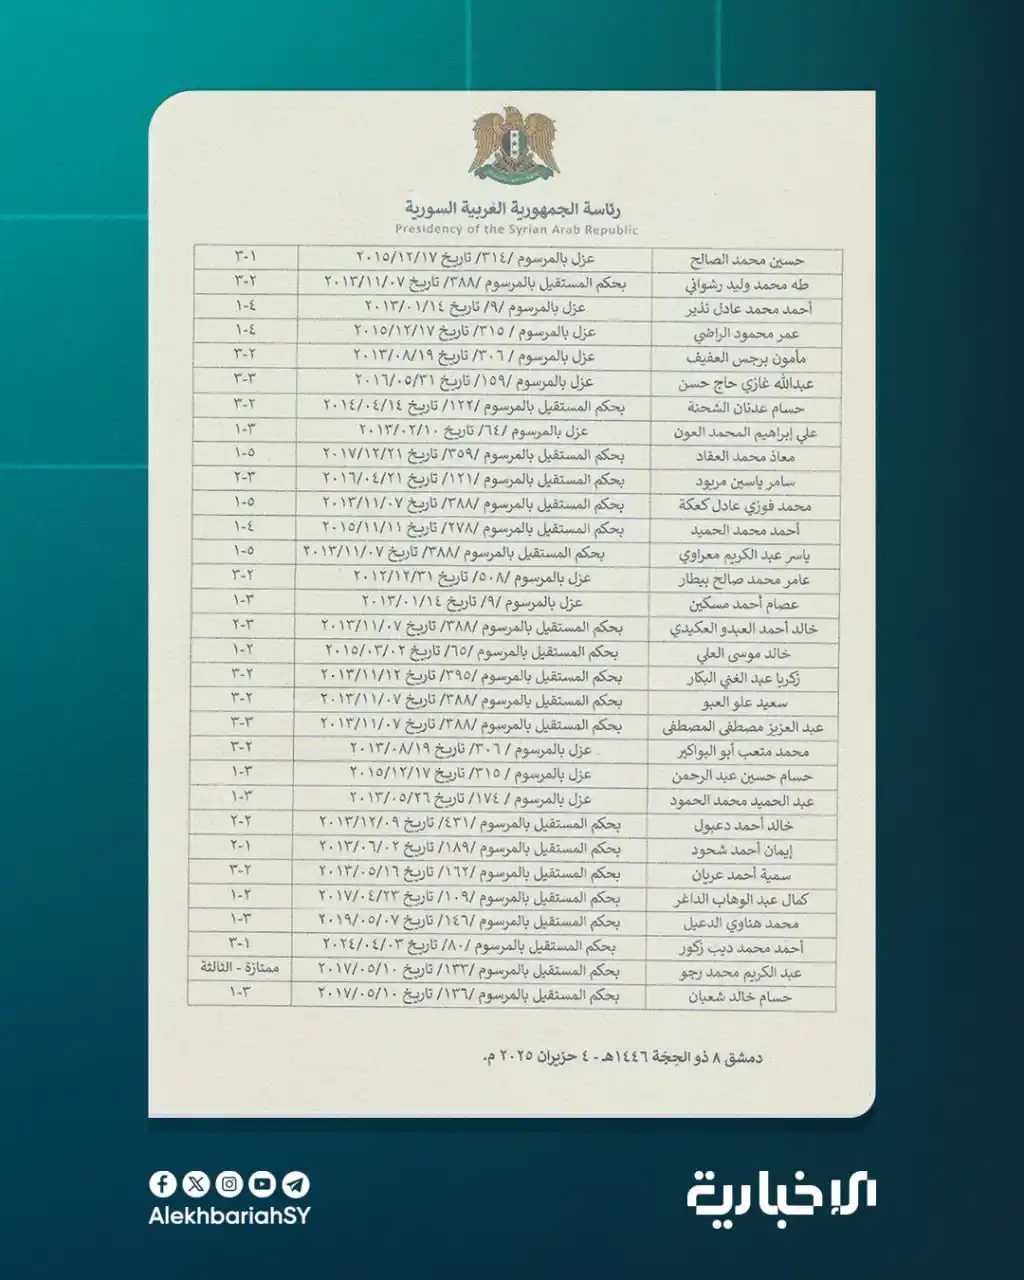 رئاسة الجمهورية العربية السورية
Presidency of the Syrian Arab Republic
حسين محمد الصالح عزل بالمرسوم /٣١٤/ تاريخ ٢٠١٥/١٢/١٧ ١-٣
طه محمد وليد رشواني بحكم المستقيل بالمرسوم /٣٨٨/ تاريخ ٢٠١٣/١١/٠٧ ٢-٣
أحمد محمد عادل نذير عزل بالمرسوم /٩/ تاريخ ٢٠١٣/٠١/١٤ ٤-١
عمر محمود الراضي عزل بالمرسوم / ٣١٥/ تاريخ ٢٠١٥/١٢/١٧ ٤-١
مأمون برجس العفيف عزل بالمرسوم / ٣٠٦/ تاريخ ٢٠١٣/٠٨/١٩ ٢-٣
عبدالله غازي حاج حسن عزل بالمرسوم /١٥٩/ تاريخ ٢٠١٦/٠٥/٣١ ٣-٣
حسام عدنان الشحنة بحكم المستقيل بالمرسوم /١٢٢/ تاريخ ٢٠١٤/٠٤/١٤ ٢-٣
علي إبراهيم المحمد العون عزل بالمرسوم /٦٤/ تاريخ ٢٠١٣/٠٢/١٠ ٣-١
معاذ محمد العقاد بحكم المستقيل بالمرسوم /٣٥٩/ تاريخ ٢٠١٧/١٢/٢١ ٥-١
سامر ياسين مريود بحكم المستقيل بالمرسوم /١٢١/ تاريخ ٢٠١٦/٠٤/٢١ ٣-٢
محمد فوزي عادل كعكة بحكم المستقيل بالمرسوم /٣٨٨/ تاريخ ٢٠١٣/١١/٠٧ ٥-١
أحمد محمد الحميد بحكم المستقيل بالمرسوم /٢٧٨/ تاريخ ٢٠١٥/١١/١١ ٤-١
ياسر عبد الكريم معراوي بحكم المستقيل بالمرسوم /٣٨٨/ تاريخ ٢٠١٣/١١/٠٧ ٥-١
عامر محمد صالح بيطار عزل بالمرسوم /٥٠٨/ تاريخ ٢٠١٢/١٢/٣١ ٢-٣
عصام أحمد مسكين عزل بالمرسوم /٩/ تاريخ ٢٠١٣/٠١/١٤ ٣-١
خالد أحمد العبدو العكيدي بحكم المستقيل بالمرسوم /٣٨٨/ تاريخ ٢٠١٣/١١/٠٧ ٣-٢
خالد موسى العلي بحكم المستقيل بالمرسوم /٦٥/ تاريخ ٢٠١٥/٠٣/٠٢ ٢-١
زكريا عبد الغني البكار بحكم المستقيل بالمرسوم /٣٩٥/ تاريخ ٢٠١٣/١١/١٢ ٢-٣
سعيد علو العبو بحكم المستقيل بالمرسوم /٣٨٨/ تاريخ ٢٠١٣/١١/٠٧ ٢-٣
عبد العزيز مصطفى المصطفى بحكم المستقيل بالمرسوم /٣٨٨/ تاريخ ٢٠١٣/١١/٠٧ ٣-٣
محمد متعب أبو البواكير عزل بالمرسوم / ٣٠٦/ تاريخ ٢٠١٣/٠٨/١٩ ٢-٣
حسام حسين عبد الرحمن عزل بالمرسوم / ٣١٥/ تاريخ ٢٠١٥/١٢/١٧ ٣-١
عبد الحميد محمد الحمود عزل بالمرسوم / ١٧٤/ تاريخ ٢٠١٣/٠٥/٢٦ ٣-١
خالد أحمد دعبول بحكم المستقيل بالمرسوم /٤٣١/ تاريخ ٢٠١٣/١٢/٠٩ ٢-٢
إيمان أحمد شحود بحكم المستقيل بالمرسوم /١٨٩/ تاريخ ٢٠١٣/٠٦/٠٢ ١-٢
سمية أحمد عريان بحكم المستقيل بالمرسوم /١٦٢/ تاريخ ٢٠١٣/٠٥/١٦ ٢-٣
كمال عبد الوهاب الداغر بحكم المستقيل بالمرسوم /١٠٩/ تاريخ ٢٠١٧/٠٤/٢٣ ٢-١
محمد هناوي الدعيل بحكم المستقيل بالمرسوم /١٤٦/ تاريخ ٢٠١٩/٠٥/٠٧ ٣-١
أحمد محمد ديب زكور بحكم المستقيل بالمرسوم /٨٠/ تاريخ ٢٠٢٤/٠٤/٠٣ ١-٣
عبد الكريم محمد رجو بحكم المستقيل بالمرسوم /١٣٣/ تاريخ ٢٠١٧/٠٥/١٠ ممتازة - الثالثة
حسام خالد شعبان بحكم المستقيل بالمرسوم /١٣٦/ تاريخ ٢٠١٧/٠٥/١٠ ٣-١
دمشق ٨ ذو الحِجّة ١٤٤٦هـ - ٤ حزيران ٢٠٢٥ م.
AlekhbariahSY
الإخبارية